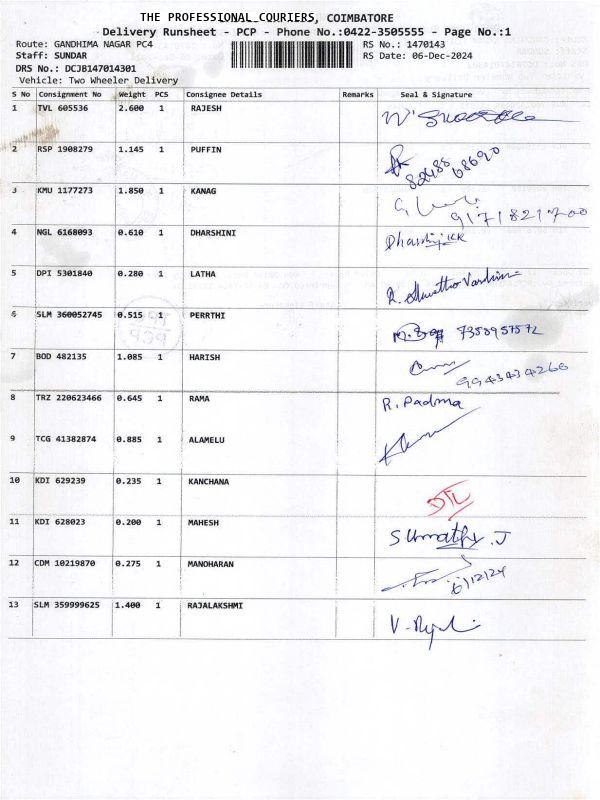 THE PROFESSIONAL COURIERS, COIMBATORE
Delivery Runsheet - PCP - Phone No.:0422-3505555 - Page No.:1
Route: GANDHIMA NAGAR PC4 RS No.: 1470143
Staff: SUNDAR RS Date: 06-Dec-2024
DRS No.: DCJB147014301
Vehicle: Two Wheeler Delivery
S No Consignment No Weight PCS Consignee Details Remarks Seal & Signature
1 TVL 605536 2.600 1 RAJESH
2 RSP 1908279 1.145 1 PUFFIN
3 KMU 1177273 1.850 1 KANAG 9171821700
4 NGL 6168093 0.610 1 DHARSHINI
5 DPI 5301840 0.280 1 LATHA
6 SLM 360052745 0.515 1 PERRTHI 7358957572
7 BOD 482135 1.085 1 HARISH 9943434266
8 TRZ 220623466 0.645 1 RAMA R. Padma
9 TCG 41382874 0.885 1 ALAMELU
10 KDI 629239 0.235 1 KANCHANA DTL
11 KDI 628023 0.200 1 MAHESH Sumathy. J
12 CDM 10219870 0.275 1 MANOHARAN 6/12/24
13 SLM 359999625 1.400 1 RAJALAKSHMI